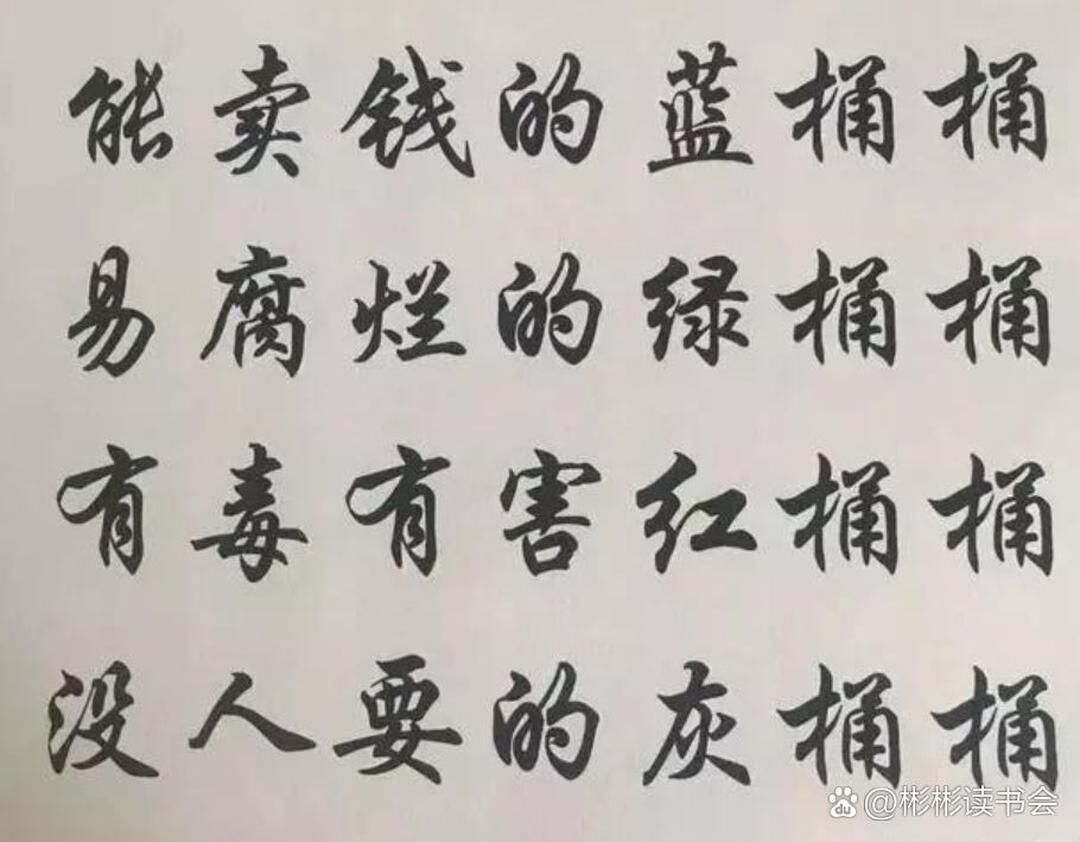 能卖钱的蓝桶桶
易腐烂的绿桶桶
有毒有害红桶桶
没人要的灰桶桶
du @彬彬读书会